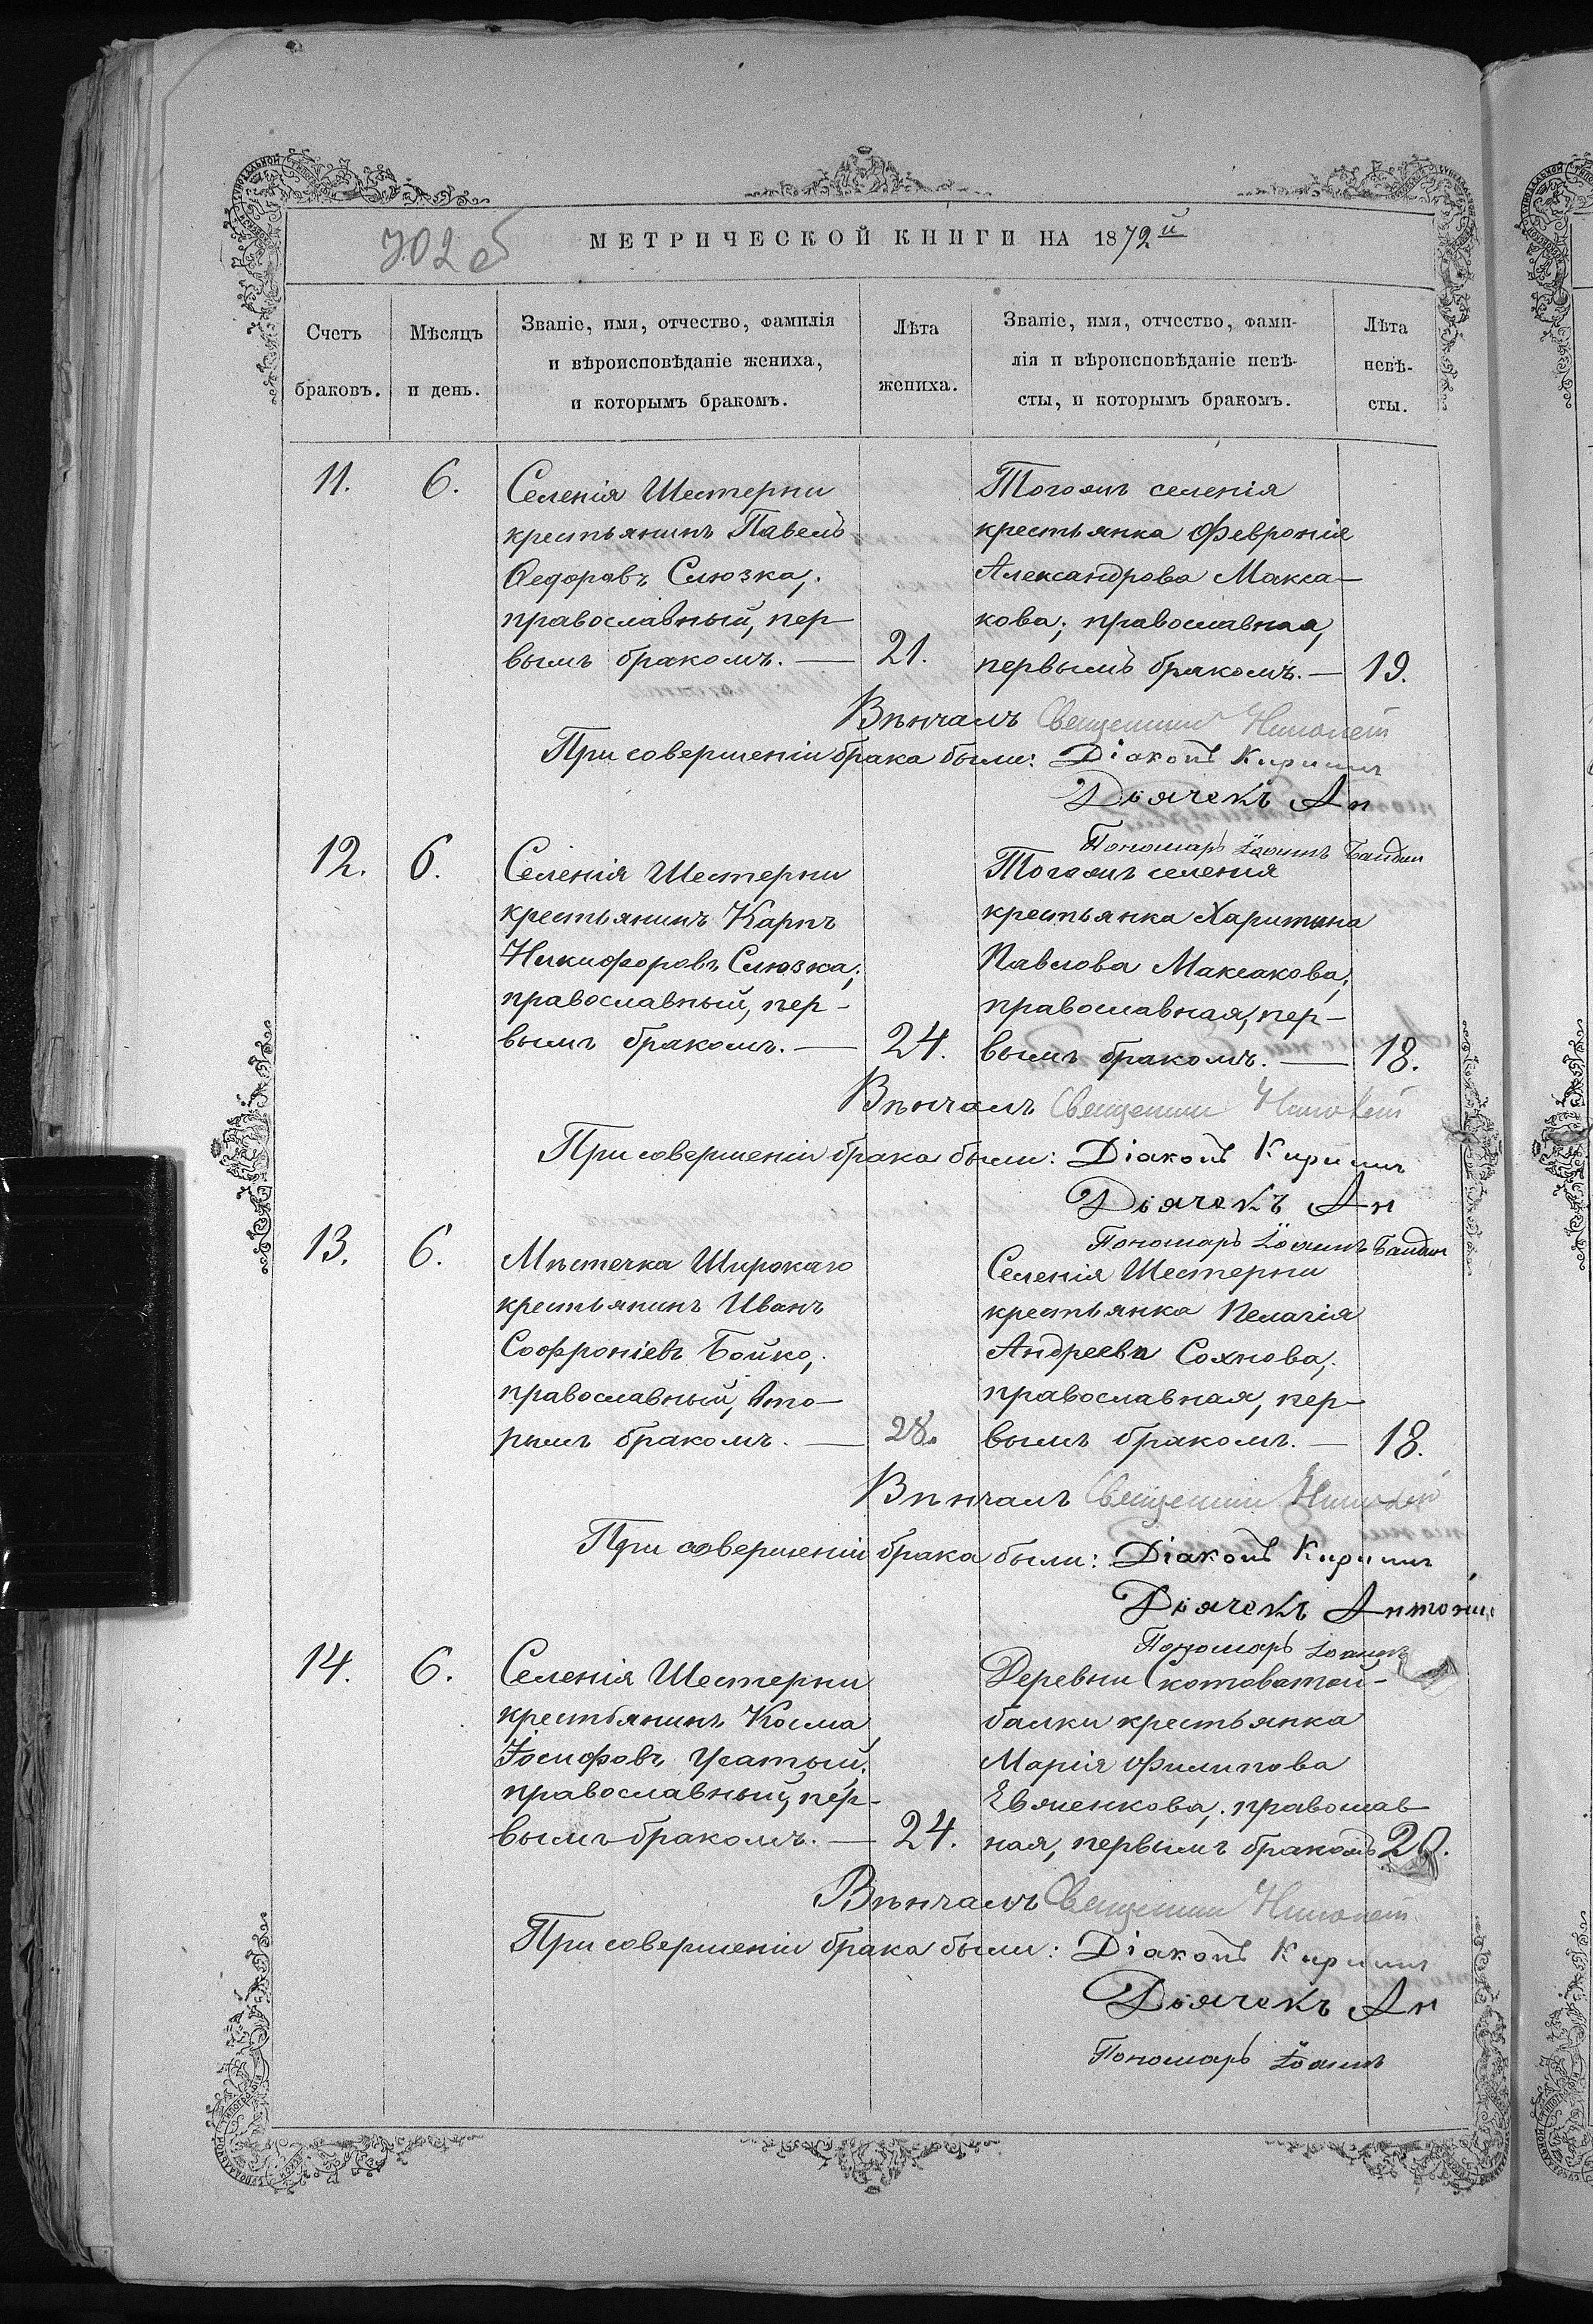 702 об
МЕТРИЧЕСКОЙ КНИГИ НА 1872й
Счетъ браковъ.
Мѣсяцъ и день.
Званіе, имя, отчество, фамилія
и вѣроисповѣданіе жениха,
и которымъ бракомъ.
Лѣта жениха.
Званіе, имя, отчество, фами-
лія и вѣроисповѣданіе невѣ-
сты, и которымъ бракомъ.
Лѣта невѣ-
сты.
11. 6.
Селенія Шестерни
крестьянинъ Павелъ
Ѳедоровъ Слюзка;
православный, пер-
вымъ бракомъ. — 21.
Тогожъ селенія
крестьянка Февронія
Александрова Макса-
кова; православная,
первымъ бракомъ. — 19.
Вѣнчалъ Священник
При совершеніи брака были: Діаконъ Кирилл
Дьячекъ Ан
Пономарь Іоаннъ
12. 6.
Селенія Шестерни
крестьянинъ Карпъ
Никифоровъ Слюзка;
православный, пер-
вымъ бракомъ. — 24.
Тогожъ селенія
крестьянка Харитина
Павлова Максакова;
православная, пер-
вымъ бракомъ. — 18.
Вѣнчалъ Священник
При совершеніи брака были: Діаконъ Кирилл
Дьячекъ Ан
Пономарь Іоаннъ
13. 6.
Мѣстечка Широкаго
крестьянинъ Иванъ
Софроніевъ Бойко;
православный, вто-
рымъ бракомъ. — 28.
Селенія Шестерни
крестьянка Пелагія
Андреева Сохнова;
православная, пер-
вымъ бракомъ. — 18.
Вѣнчалъ Священник
При совершеніи брака были: Діаконъ Кирилл
Дьячекъ Антоній
Пономарь Іоаннъ
14. 6.
Селенія Шестерни
крестьянинъ Косма
Іосифовъ Усатый;
православный, пер-
вымъ бракомъ. — 24.
Деревни Скотоватой-
балки крестьянка
Марія Филипова
православ-
ная, первымъ бракомъ 20.
Вѣнчалъ Священник
При совершеніи брака были: Діаконъ Кирилл
Дьячекъ Ан
Пономарь Іоаннъ